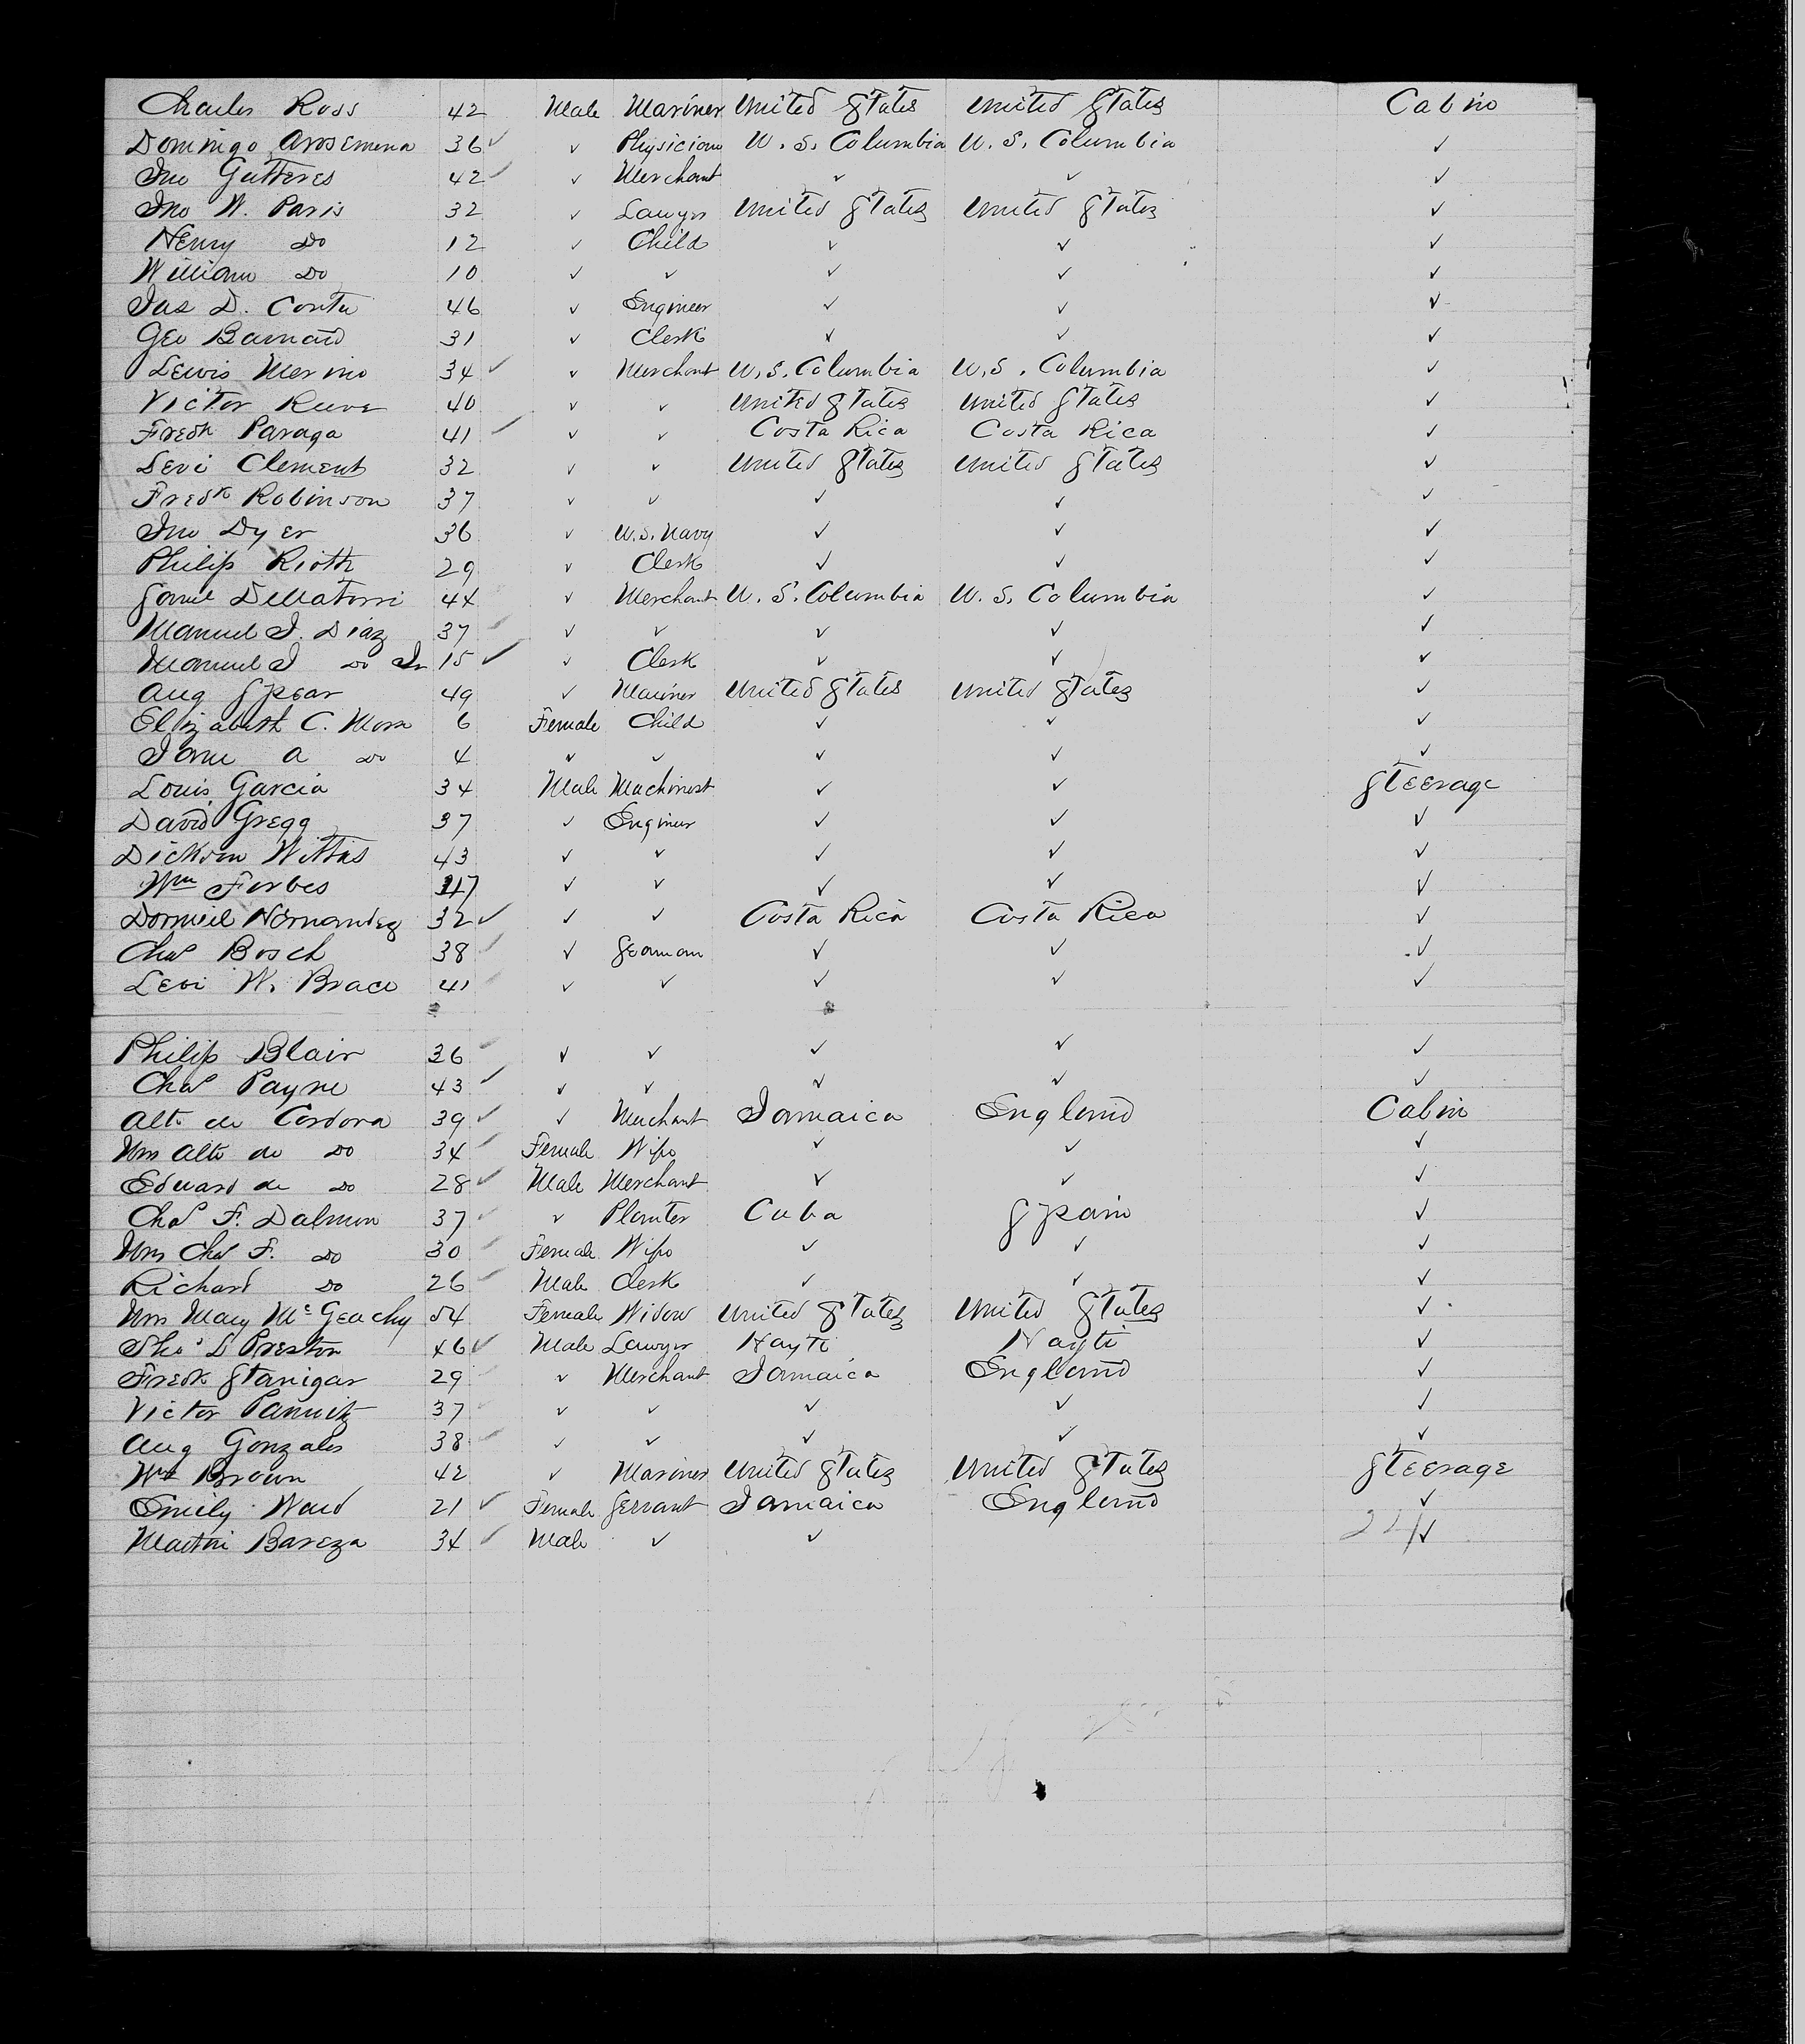 Charles Ross 42 Male Mariner United States United States Cabin
Domingo Arosemena 36 ✓ ✓ Physician U. S. Columbia U. S. Columbia ✓
Jno Gutteres 42 ✓ ✓ Merchant ✓ ✓ ✓
Jno W. Paris 32 ✓ Lawyer United States United States ✓
Henry Do 12 ✓ Child ✓ ✓ ✓
William Do 10 ✓ ✓ ✓ ✓ ✓
Jas D. 46 ✓ Engineer ✓ ✓ ✓
Geo Barnard 31 ✓ Clerk ✓ ✓ ✓
Lewis Merino 34 ✓ ✓ Merchant U.S. Columbia U.S. Columbia ✓
Victor Reeve 40 ✓ ✓ United States United States ✓
Fredk Paraga 41 ✓ ✓ ✓ Costa Rica Costa Rica ✓
Levi Clement 32 ✓ ✓ United States United States ✓
Fredk Robinson 37 ✓ ✓ ✓ ✓ ✓
Jno Dyer 36 ✓ U.S. Navy ✓ ✓ ✓
Philip Rioth 29 ✓ Clerk ✓ ✓ ✓
44 ✓ Merchant U. S. Columbia U. S. Columbia ✓
Manuel J. Diaz 37 ✓ ✓ ✓ ✓ ✓ ✓
Manuel J Do Jr 15 ✓ ✓ Clerk ✓ ✓ ✓
Aug Spear 49 ✓ Mariner United States United States ✓
Elizabeth C. Morse 6 Female Child ✓ ✓ ✓
Jane A Do 4 ✓ ✓ ✓ ✓ ✓
Louis Garcia 34 Male Machinist ✓ ✓ Steerage
David Gregg 37 ✓ Engineer ✓ ✓ ✓
Dickson 43 ✓ ✓ ✓ ✓ ✓
Wm Forbes 47 ✓ ✓ ✓ ✓ ✓
Hernandez 32 ✓ ✓ ✓ Costa Rica Costa Rica ✓
Chas Bosch 38 ✓ ✓ Seaman ✓ ✓ ✓
Levi W. Brace 41 ✓ ✓ ✓ ✓ ✓
Philip Blair 36 ✓ ✓ ✓ ✓ ✓ ✓
Chas Payne 43 ✓ ✓ ✓ ✓ ✓ ✓
Alt. de Cordova 39 ✓ ✓ Merchant Jamaica England Cabin
Mrs Alt. de Do 34 ✓ Female Wife ✓ ✓ ✓
Edward de Do 28 ✓ Male Merchant ✓ ✓ ✓
Chas F. Dalmon 37 ✓ ✓ Planter Cuba Spain ✓
Mrs Chas F. Do 30 ✓ Female Wife ✓ ✓ ✓
Richard Do 26 ✓ Male Clerk ✓ ✓ ✓
Mrs Mary McGeachy 54 Female Widow United States United States ✓
Thos L Preston 46 ✓ Male Lawyer Hayti Hayti ✓
Fredk Stanigar 29 ✓ Merchant Jamaica England ✓
Victor 37 ✓ ✓ ✓ ✓ ✓ ✓
Aug Gonzales 38 ✓ ✓ ✓ ✓ ✓ ✓
Wm Brown 42 ✓ Mariner United States United States Steerage
Emily Ward 21 ✓ Female Servant Jamaica England ✓
Bareza 34 ✓ Male ✓ ✓ ✓